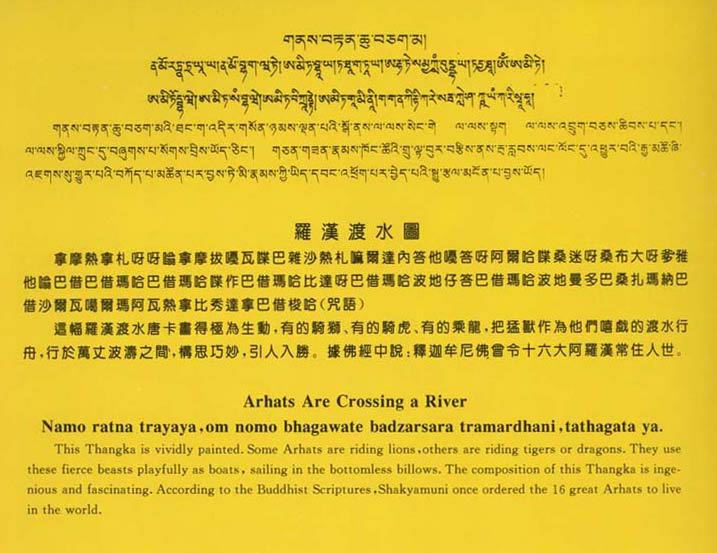 གནས་བརྟན་ཆུ་བཅག་མ།
གནས་བརྟན་ཆུ་བཅག་མའི་ཐང་ག་འདིར་གསོན་ཉམས་ལྡན་པའི་སྒོ་ནས་ལ་ལས་སེང་གེ ལ་ལས་སྟག ལ་ལས་འབྲུག་བཅས་ཆིབས་པ་དང་།
ལ་ལས་སྐྱིལ་ཀྲུང་དུ་བཞུགས་པ་སོགས་བྲིས་ཡོད་ཅིང་། གཅན་གཟན་རྣམས་ཁོང་ཚོའི་གྲུ་ལྟ་བུར་བརྩིས་ནས་རྦ་རླབས་ལང་ལོང་དུ་འཕྱུར་བའི་རྒྱ་མཚོ་ཞི་
འཇགས་སུ་གྱུར་པའི་བཀོད་པ་མཚོན་པར་བྱས་ཏེ་མི་རྣམས་ཀྱི་ཡིད་དབང་འཕྲོག་པར་བྱེད་པའི་སྒྱུ་རྩལ་མངོན་པ་བྱས་ཡོད།
羅漢渡水圖
拿摩熱拿札呀呀嗡拿摩拔嘎瓦喋巴雜沙熱札嘛爾達內答他嘎答呀阿爾哈喋桑迷呀桑布大呀爹雅
他嗡巴借巴借瑪哈巴借瑪哈喋作巴借瑪哈比達呀巴借瑪哈波地仔答巴借瑪哈波地曼多巴桑扎瑪納巴
借沙爾瓦噶爾瑪阿瓦熱拿比秀達拿巴借梭哈(咒語)
這幅羅漢渡水唐卡畫得極為生動,有的騎獅、有的騎虎、有的乘龍,把猛獸作為他們嘻戲的渡水行
舟,行於萬丈波濤之間,構思巧妙,引人入勝。據佛經中說:釋迦牟尼佛曾令十六大阿羅漢常住人世。
Arhats Are Crossing a River
Namo ratna trayaya,om nomo bhagawate badzarsara tramardhani,tathagata ya.
This Thangka is vividly painted. Some Arhats are riding lions,others are riding tigers or dragons. They use
these fierce beasts playfully as boats, sailing in the bottomless billows. The composition of this Thangka is inge-
nious and fascinating. According to the Buddhist Scriptures,Shakyamuni once ordered the 16 great Arhats to live
in the world.